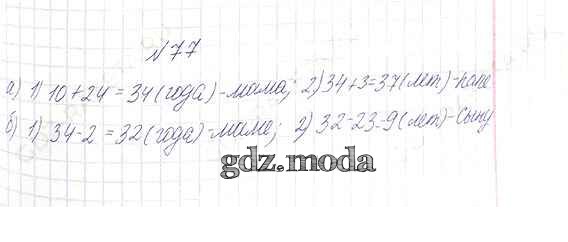 №77
а) 1) 10+24 = 34 (года) - мама; 2) 34+3=37 (лет) - папе
б) 1) 34-2 = 32 (года) - маме; 2) 32-23=9 (лет) - сыну
gdz.moda